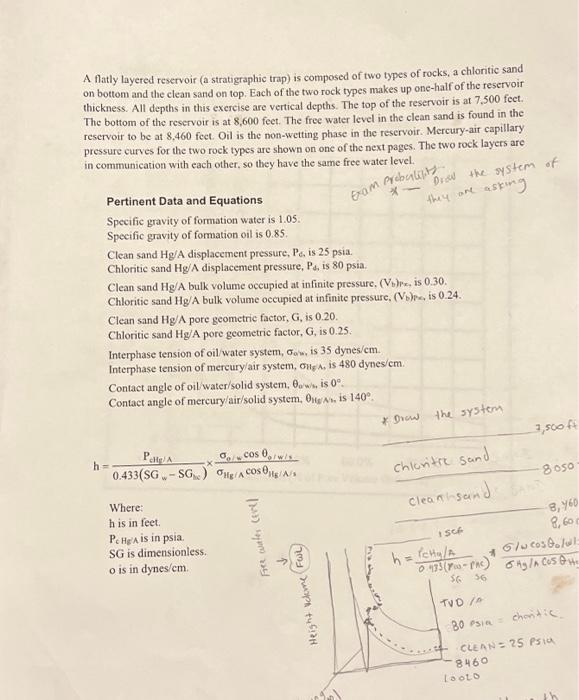 A flatly layered reservoir (a stratigraphic trap) is composed of two types of rocks, a chloritic sand
on bottom and the clean sand on top. Each of the two rock types makes up one-half of the reservoir
thickness. All depths in this exercise are vertical depths. The top of the reservoir is at 7,500 feet.
The bottom of the reservoir is at 8,600 feet. The free water level in the clean sand is found in the
reservoir to be at 8,460 feet. Oil is the non-wetting phase in the reservoir. Mercury-air capillary
pressure curves for the two rock types are shown on one of the next pages. The two rock layers are
in communication with each other, so they have the same free water level.
Exam Probability
* — Draw the system of
they are asking
Pertinent Data and Equations
Specific gravity of formation water is 1.05.
Specific gravity of formation oil is 0.85.
Clean sand Hg/A displacement pressure, Pd, is 25 psia.
Chloritic sand Hg/A displacement pressure, Pd, is 80 psia.
Clean sand Hg/A bulk volume occupied at infinite pressure, (Vb)P∞, is 0.30.
Chloritic sand Hg/A bulk volume occupied at infinite pressure, (Vb)P∞, is 0.24.
Clean sand Hg/A pore geometric factor, G, is 0.20.
Chloritic sand Hg/A pore geometric factor, G, is 0.25.
Interphase tension of oil/water system, σo/w, is 35 dynes/cm.
Interphase tension of mercury/air system, σHg/A, is 480 dynes/cm.
Contact angle of oil/water/solid system, θo/w/s, is 0°.
Contact angle of mercury/air/solid system, θHg/A/s, is 140°.
* Draw the system
7,500 ft
chloritic sand
8050
clean sand
8,460
8,600
h = PcHg/A / 0.433(SGw – SGhc) × σo/w cos θo/w/s / σHg/A cos θHg/A/s
Where:
h is in feet.
Pc Hg/A is in psia.
SG is dimensionless.
σ is in dynes/cm.
Free water level
Height Volume FWL
h = PcHg/A / 0.433(
SG SG
TVD
80 psia = choritic
CLEAN = 25 PSIA
8460